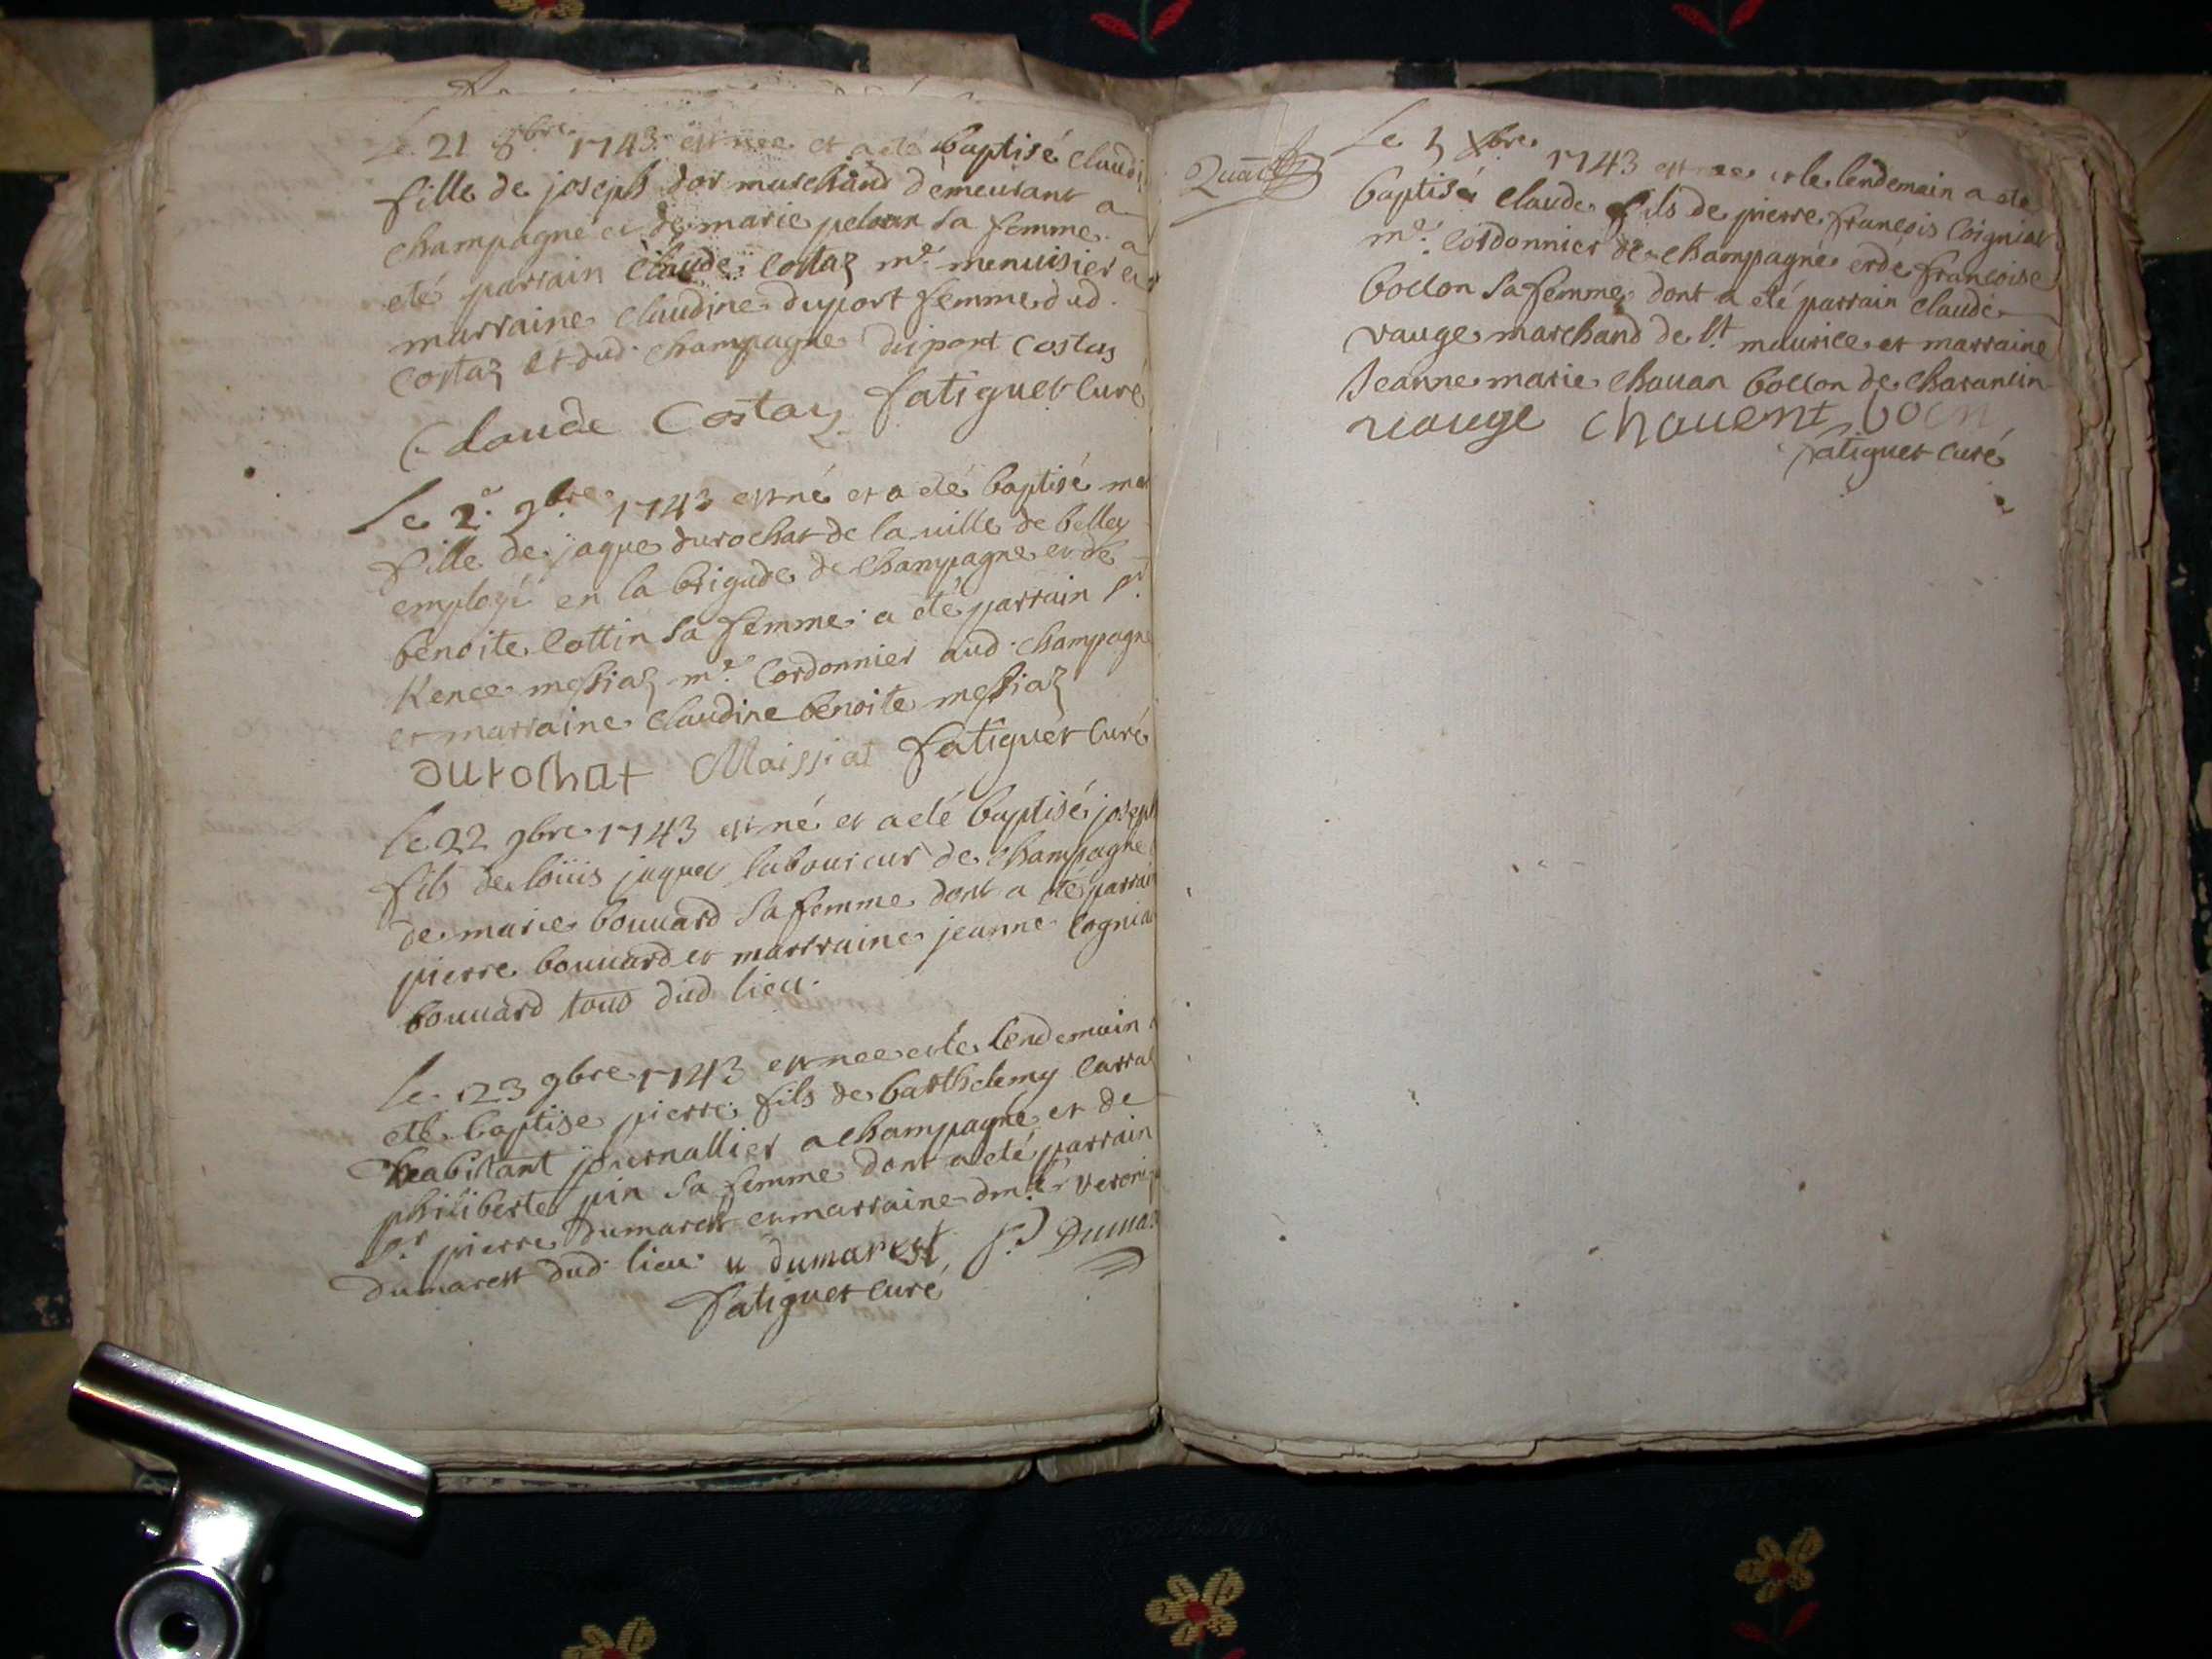 Le 21 8bre 1743 est nee et a eté baptisé claudi
fille de joseph dor marchand demeurant a
champagne et de marie peloux sa femme a
eté parrain claude Costaz me menuisier et
marraine claudine duport femme dud.
Costaz et dud. champagne duport Costas
Claude Costaz fatiguet curé
Le 2e 9bre 1743 est né et a eté baptisé mar
fille de jaque durochat de la ville de belley
employé en la brigade de champagne et de
benoite Cottin sa femme a eté parrain sr
Rence messiaz me Cordonnier aud. champagne
et marraine claudine benoite messiaz
durochat Maissiat fatiguet curé
Le 22 9bre 1743 est né et a eté baptisé joseph
fils de loüis jaquet laboureur de champagne
de marie bouuard sa femme dont a eté parrain
pierre bouuard et marraine jeanne Cognia
bouuard tous dud lieu.
Le 23 9bre 1743 est nee et le lendemain a
eté baptise pierre fils de barthelemy Carra
habitant journallier a champagne et de
philiberte pin sa femme dont a eté parrain
sr pierre dumarest et marraine dmlle veroni
dumarest dud. lieu u dumarest P Dumar
fatiguet curé
Le 5 Xbre 1743 est nee et le lendemain a ete
baptisé claude fils de pierre françois Coigniat
me. Cordonnier de champagne et de françoise
bollon sa femme dont a eté parrain claude
vauge marchand de st maurice et marraine
Jeanne marie chauan bollon de charancin
uauge chauent
fatiguet curé